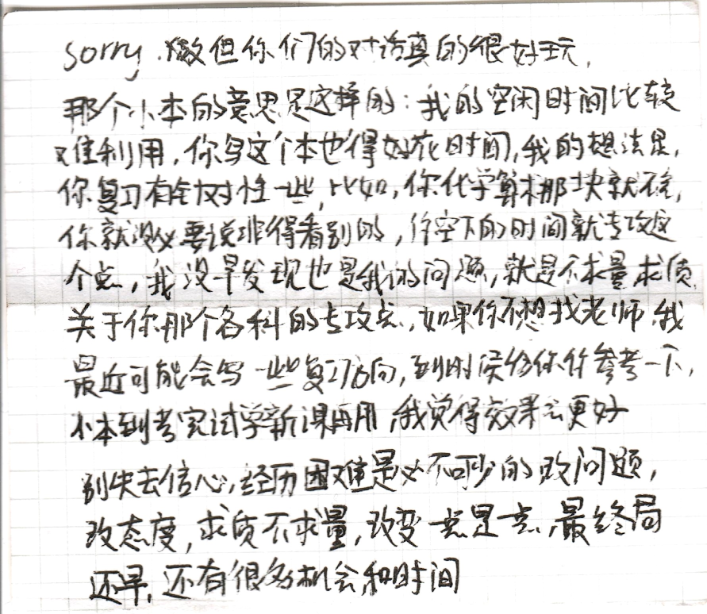 sorry.微但你们的对话真的很好玩,
那个小本的意思是这样的:我的空闲时间比较
难利用,你写这个本也得好花时间,我的想法是,
你复习有针对性一些,比如,你化学算术那块就不会,
你就没必要说非得看别的,你空下的时间就专攻这
个点,我没早发现也是我的问题,就是不求量求质.
关于你那个各科的专攻点,如果你不想找老师,我
最近可能会写一些复习方向,到时候给你们参考一下,
小本到考完试学新课再用,我觉得效果会更好
别失去信心,经历困难是必不可少的改问题,
改态度,求质不求量,改变一点是一点,最终局
还早,还有很多机会和时间